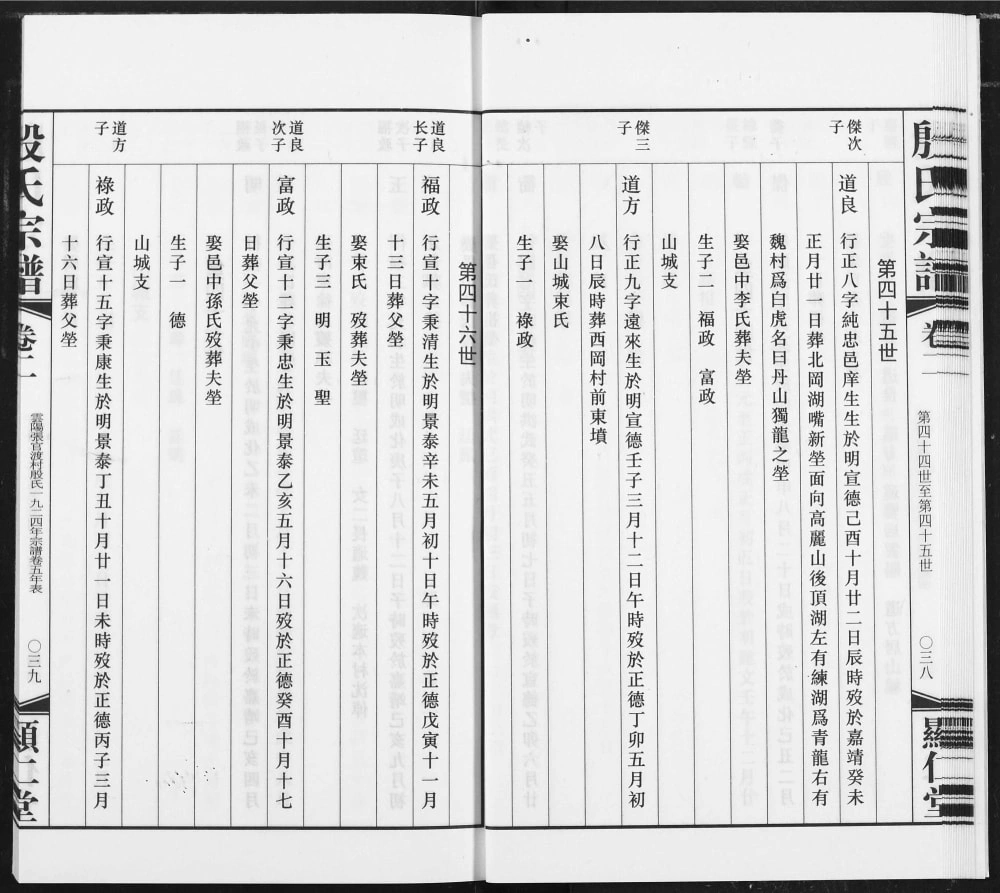 殷氏宗譜
卷二
第四十四世至第四十五世
〇三八
顯仁堂
第四十五世
傑次
子
道良
行正八字純忠邑庠生生於明宣德己酉十月廿二日辰時歿於嘉靖癸未
正月廿八日葬北岡湖嘴新塋面向高麗山後頂湖左有練湖爲青龍右有
魏村爲白虎名曰丹山獨龍之塋
娶邑中李氏葬夫塋
生子二 福政 富政
山城支
傑三
子
道方
行正九字遠來生於明宣德壬子三月十二日午時歿於正德丁卯五月初
八日辰時葬西岡村前東墳
娶山城束氏
生子一 祿政
第四十六世
道良
长子
福政
行宣十字秉清生於明景泰辛未五月初十日午時歿於正德戊寅十一月
十三日葬父塋
娶束氏 歿葬夫塋
生子三 明 玉 聖
道良
次子
富政
行宣十一字秉忠生於明景泰乙亥五月十六日歿於正德癸酉十月十七
日葬父塋
娶邑中孫氏歿葬夫塋
生子一 德
山城支
道方
子
祿政
行宣十五字秉康生於明景泰丁丑十月廿一日未時歿於正德丙子三月
十六日葬父塋
殷氏宗譜
卷二
雲陽張官渡村殷氏一九二四年宗譜卷五年表
〇三九
顯仁堂